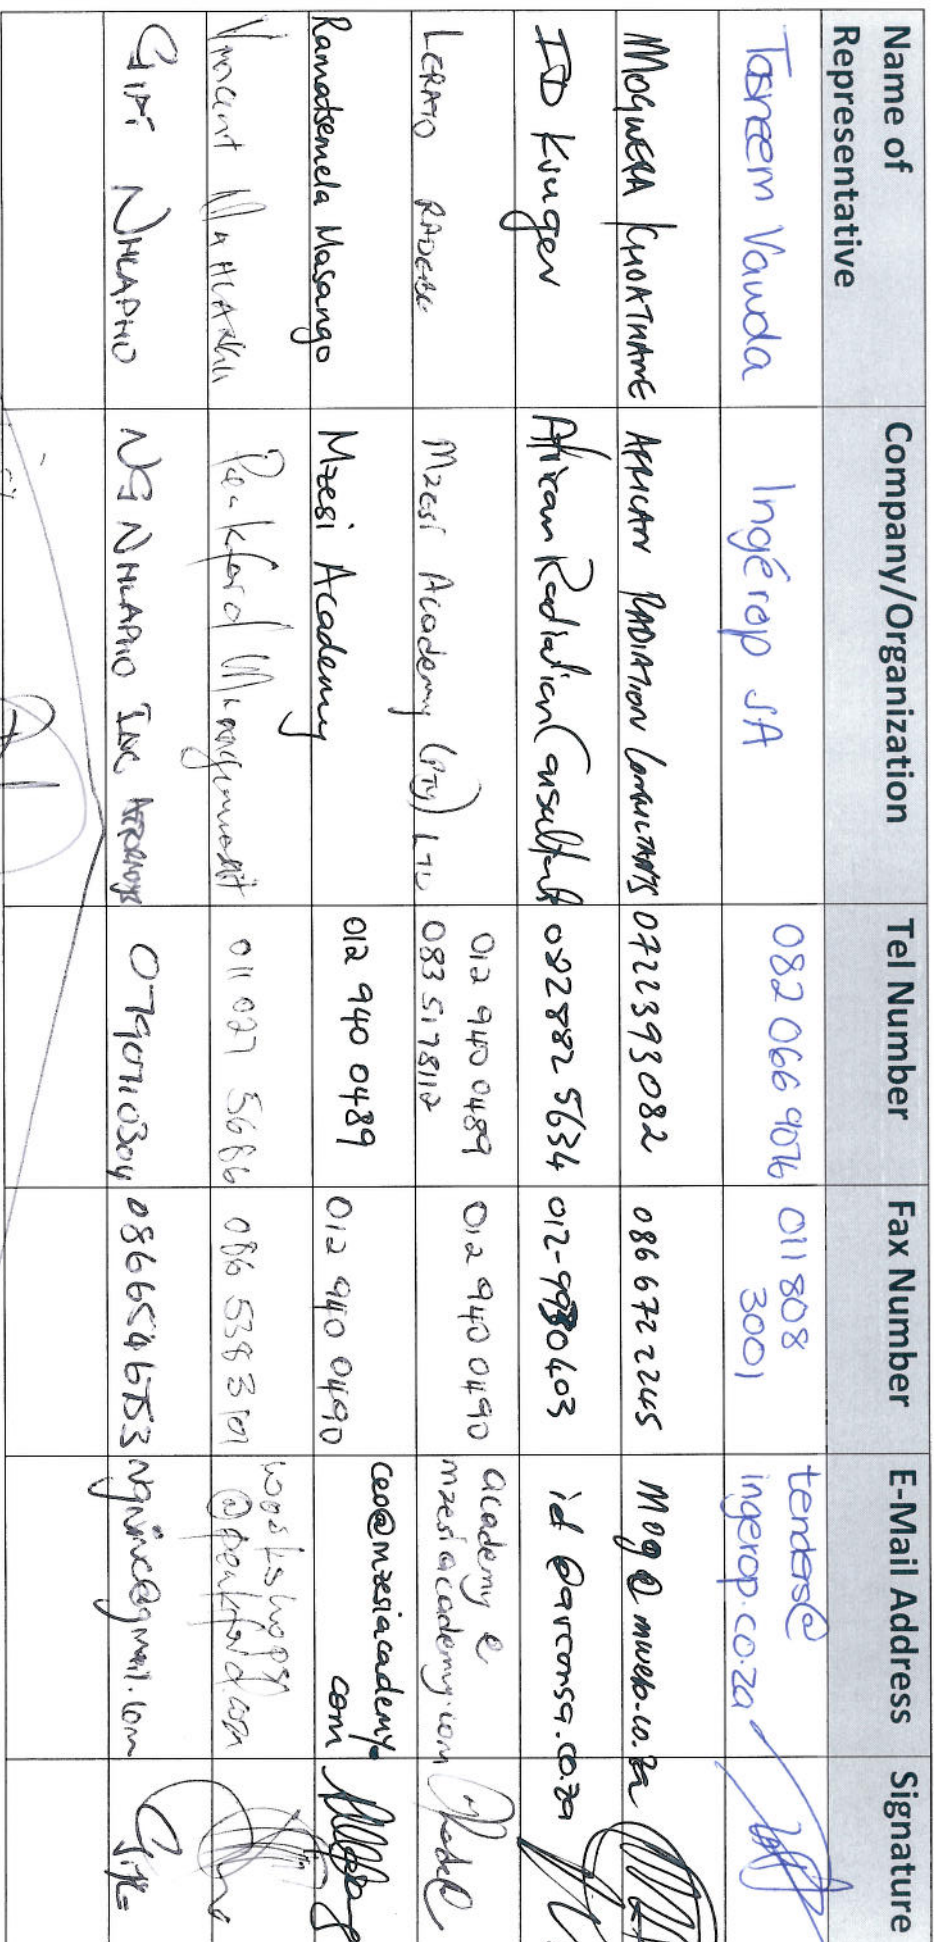 Name of Representative Company/Organization Tel Number Fax Number E-Mail Address Signature
Tasneem Vawda Ingérop SA 082 066 9076 011 808 3001 tenders@ingerop.co.za
MOGWERA KHOATHANE AFRICAN RADIATION CONSULTANTS 0722393082 086 672 2245 mog@muvero.co.za
ID Kruger African Radiation Consultants 082882 5634 012-9980403 id@arconsa.co.za
LERATO RADEBE Mzesi Academy (PTY) LTD 012 940 0489 083 5178112 012 940 0490 academy@mzesiacademy.com
Ramatsemela Masango Mzesi Academy 012 940 0489 012 940 0490 ceo@mzesiacademy.com
Vincent Peakford Management 011 027 5686 086 538 3101 workshops@peakford.com
GIFT NHLAPHO NG NHLAPHO INC, ATTORNEYS 0790710304 0866546753 ngninc@gmail.com